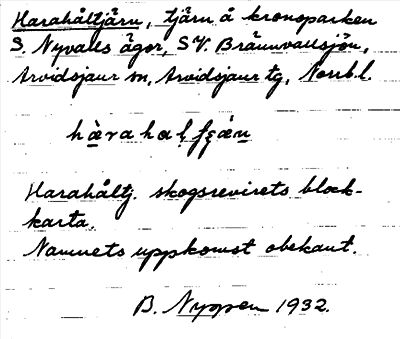 Harahåltjärn, tjärn å kronoparken
S. Nyvalls ägor, SV. Brännvallsjön,
Arvidsjaur sn, Arvidsjaur tg, Norrb.l.
Harahåltj. skogsrevirets block-
karta.
Namnets uppkomst obekant.
B. Nygren 1932.